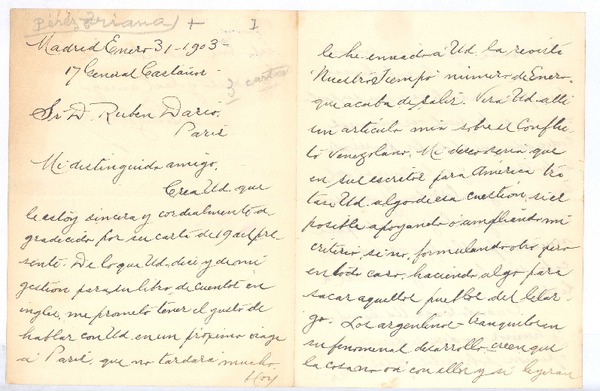 Pérez Triana + I
Madrid Enero 31-1903-
17 General Castaños.
3 cartas
Sr. D. Ruben Dario.
Paris
Mi distinguido amigo,
Crea Ud. que
le estoy sincera y cordialmente a
gradecido por su carta del 19 del pre
sente. De lo que Ud. dice y de mi
gestion para su libro de cuentos en
ingles, me prometo tener el gusto de
hablar con Ud. en un próximo viage
á Paris, que no tardará mucho.
Hoy
le he enviado á Ud. la revista
Nuestro Tiempo número de Enero,
que acaba de salir. Verá Ud. alli
un artículo mio sobre el Conflic
to Venezolano. Mi deseo seria que
en sus escritos para América tra
tase Ud. algo de esa cuestión, si es
posible apoyando ó ampliando mi
criterio, si no, formulando otro pero
en todo caso, haciendo algo para
sacar aquellos pueblos del letar-
go. Los argentinos tranquilos en
su fenomenal desarrollo creen que
la cosa no vá con ellos y si llegan